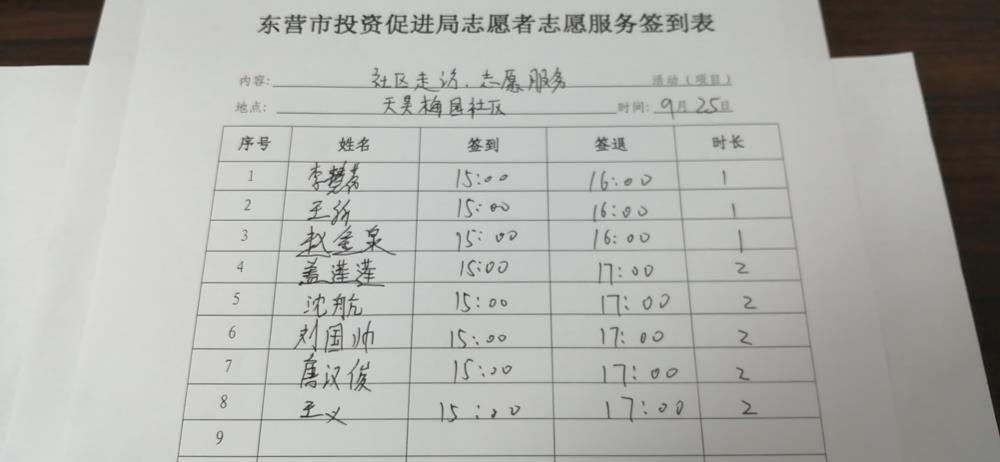 东营市投资促进局志愿者志愿服务签到表
内容: 社区走访、志愿服务 活动（项目）
地点: 天昊梅园社区 时间: 9月25日
序号 姓名 签到 签退 时长
1 李慧芳 15:00 16:00 1
2 王 15:00 16:00 1
3 赵金泉 15:00 16:00 1
4 盖莲莲 15:00 17:00 2
5 沈航 15:00 17:00 2
6 刘国帅 15:00 17:00 2
7 唐汉俊 15:00 17:00 2
8 王义 15:00 17:00 2
9